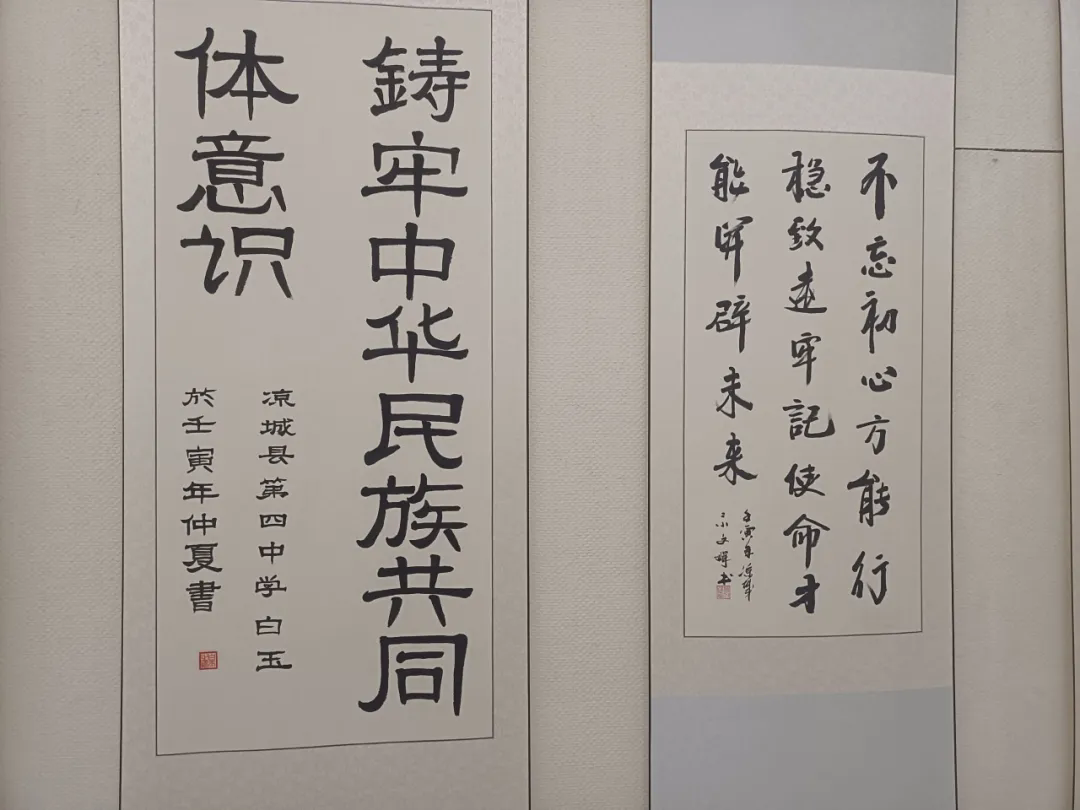 鑄牢中华民族共同
体意识
凉城县第四中学白玉
於壬寅年仲夏書
不忘初心方能行
稳致遠牢記使命才
能開辟未来
壬寅年凉城
文輝书